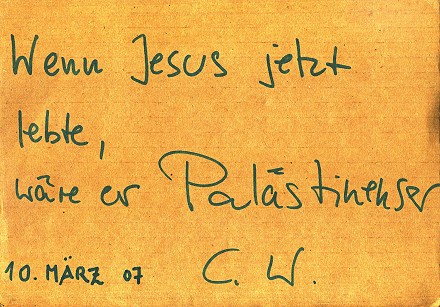 Wenn Jesus jetzt
lebte,
wäre er Palästinenser
10. MÄRZ 07 C. W.